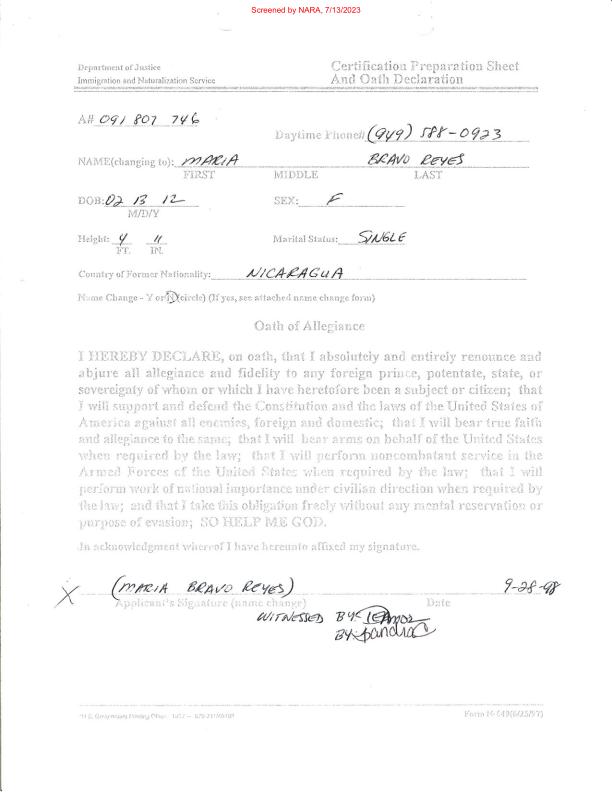 Screened by NARA, 7/13/2023
Department of Justice
Immigration and Naturalization Service
Certification Preparation Sheet
And Oath Declaration
A# 091 807 746
Daytime Phone# (949) 588-0923
NAME(changing to): MARIA BRAVO REYES
FIRST MIDDLE LAST
DOB: 02 13 12 SEX: F
M/D/Y
Height: 4 11 Marital Status: SINGLE
FT. IN.
Country of Former Nationality: NICARAGUA
Name Change - Y or N (circle) (If yes, see attached name change form)
Oath of Allegiance
I HEREBY DECLARE, on oath, that I absolutely and entirely renounce and
abjure all allegiance and fidelity to any foreign prince, potentate, state, or
sovereignty of whom or which I have heretofore been a subject or citizen; that
I will support and defend the Constitution and the laws of the United States of
America against all enemies, foreign and domestic; that I will bear true faith
and allegiance to the same; that I will bear arms on behalf of the United States
when required by the law; that I will perform noncombatant service in the
Armed Forces of the United States when required by the law; that I will
perform work of national importance under civilian direction when required by
the law; and that I take this obligation freely without any mental reservation or
purpose of evasion; SO HELP ME GOD.
In acknowledgment whereof I have hereunto affixed my signature.
X (MARIA BRAVO REYES) 9-28-98
Applicant's Signature (name change) Date
WITNESSED BY:
BY: Sandra
Form N-649(6/25/97)